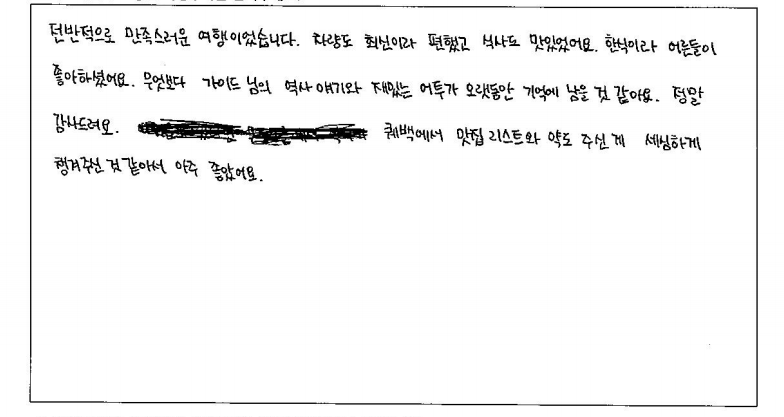 전반적으로 만족스러운 여행이었습니다. 차량도 최신이라 편했고 식사도 맛있었어요. 한식이라 어른들이
좋아하셨어요. 무엇보다 가이드 님의 역사 얘기와 재밌는 어투가 오랫동안 기억에 남을 것 같아요. 정말
감사드려요. 퀘백에서 맛집 리스트와 약도 주신 게 세심하게
챙겨주신 것 같아서 아주 좋았어요.